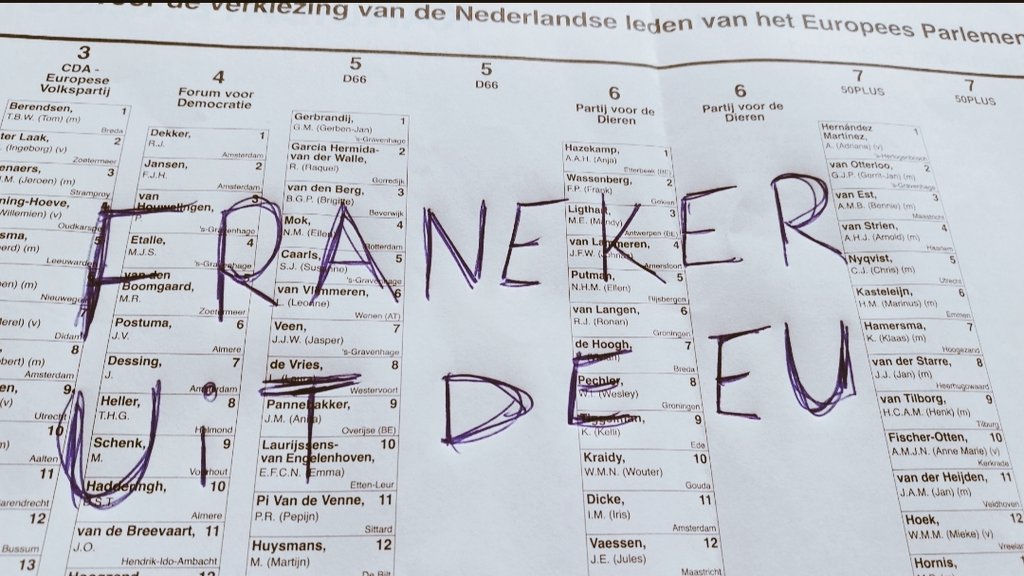 de verkiezing van de Nederlandse leden van het Europees
3
CDA -
Europese
Volkspartij
Berendsen, 1
T.B.W. (Tom) (m)
Breda
ter Laak, 2
(Ingeborg) (v)
Zoetermeer
3
(Jeroen) (m)
Stramproy
Willemien) (v)
8
Amsterdam
9
Utrecht
10
Aalten
11
12
Bussum
13
4
Forum voor
Democratie
Dekker, 1
R.J.
Amsterdam
Jansen, 2
F.J.H.
Amsterdam
van 3
Houwelingen,
's-Gravenhage
Etalle, 4
M.J.S.
van den
Boomgaard,
M.R.
Zoetermeer
Postuma, 6
J.V.
Almere
Dessing, 7
J.
Heller, 8
T.H.G.
Helmond
Schenk, 9
M.
Voorhout
10
Almere
van de Breevaart, 11
J.O.
Hendrik-Ido-Ambacht
12
5
D66
Gerbrandij, 1
G.M. (Gerben-Jan)
's-Gravenhage
Garcia Hermida- 2
van der Walle,
R. (Raquel)
Gorredijk
van den Berg, 3
B.G.P. (Brigitte)
Beverwijk
Mok, 4
Rotterdam
Caarls, 5
van Vlimmeren, 6
Wenen (AT)
Veen, 7
J.J.W. (Jasper)
's-Gravenhage
de Vries, 8
Westervoort
Pannebakker, 9
J.M.
Overijse (BE)
Laurijssens- 10
van Engelenhoven,
E.F.C.N. (Emma)
Etten-Leur
Pi Van de Venne, 11
P.R. (Pepijn)
Sittard
Huysmans, 12
M. (Martijn)
De Bilt
5
D66
6
Partij voor de
Dieren
Hazekamp, 1
A.A.H. (Anja)
Etterbeek (BE)
Wassenberg, 2
F.P. (Frank)
Ligthart, 3
M.E. (Mandy)
Antwerpen (BE)
van Lammeren, 4
J.F.W.
Amersfoort
Putman, 5
N.H.M. (Ellen)
van Langen, 6
R.J. (Ronan)
Groningen
de Hoogh, 7
Breda
Pechler, 8
(Wesley)
Groningen
9
K. (Kelli)
Ede
Kraidy, 10
W.M.N. (Wouter)
Gouda
Dicke, 11
I.M. (Iris)
Amsterdam
Vaessen, 12
J.E. (Jules)
Maastricht
6
Partij voor de
Dieren
7
50PLUS
Hernández 1
Martinez,
A. (Adriana) (v)
's-Hertogenbosch
van Otterloo, 2
G.J.P. (Gerrit-Jan) (m)
's-Gravenhage
van Est, 3
A.M.B. (Bennie) (m)
Maastricht
van Strien, 4
A.H.J. (Arnold) (m)
Haarlem
Nyqvist, 5
C.J. (Chris) (m)
Kasteleijn, 6
H.M. (Marinus) (m)
Emmen
Hamersma, 7
K. (Klaas) (m)
Hoogezand
van der Starre, 8
J.J. (Jan) (m)
Heerhugowaard
van Tilborg, 9
H.C.A.M. (Henk) (m)
Tilburg
Fischer-Otten, 10
A.M.J.N. (Anne Marie) (v)
Kerkrade
van der Heijden, 11
J.A.M. (Jan) (m)
Veldhoven
Hoek, 12
W.M.M. (Mieke) (v)
Hornis,
7
50PLUS
FRANEKER
UiT DE EU